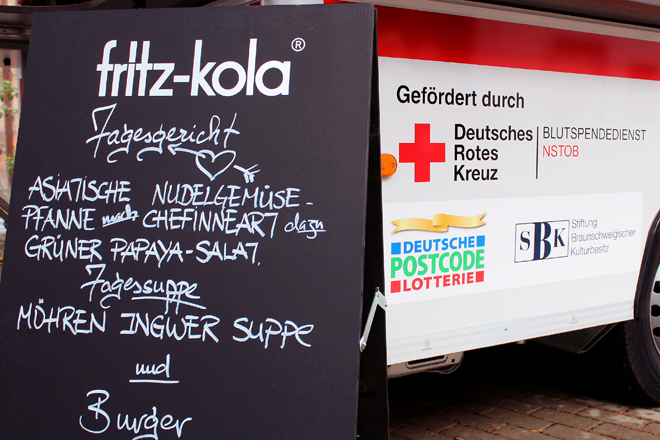 fritz-kola®
Tagesgericht
ASIATISCHE NUDELGEMÜSE-
PFANNE nach CHEFINNEART dazu
GRÜNER PAPAYA-SALAT.
Tagessuppe
MÖHREN INGWER SUPPE
und
Burger
Gefördert durch
Deutsches
Rotes
Kreuz
BLUTSPENDEDIENST
NSTOB
DEUTSCHE
POSTCODE
LOTTERIE
SBK
Stiftung
Braunschweigischer
Kulturbesitz